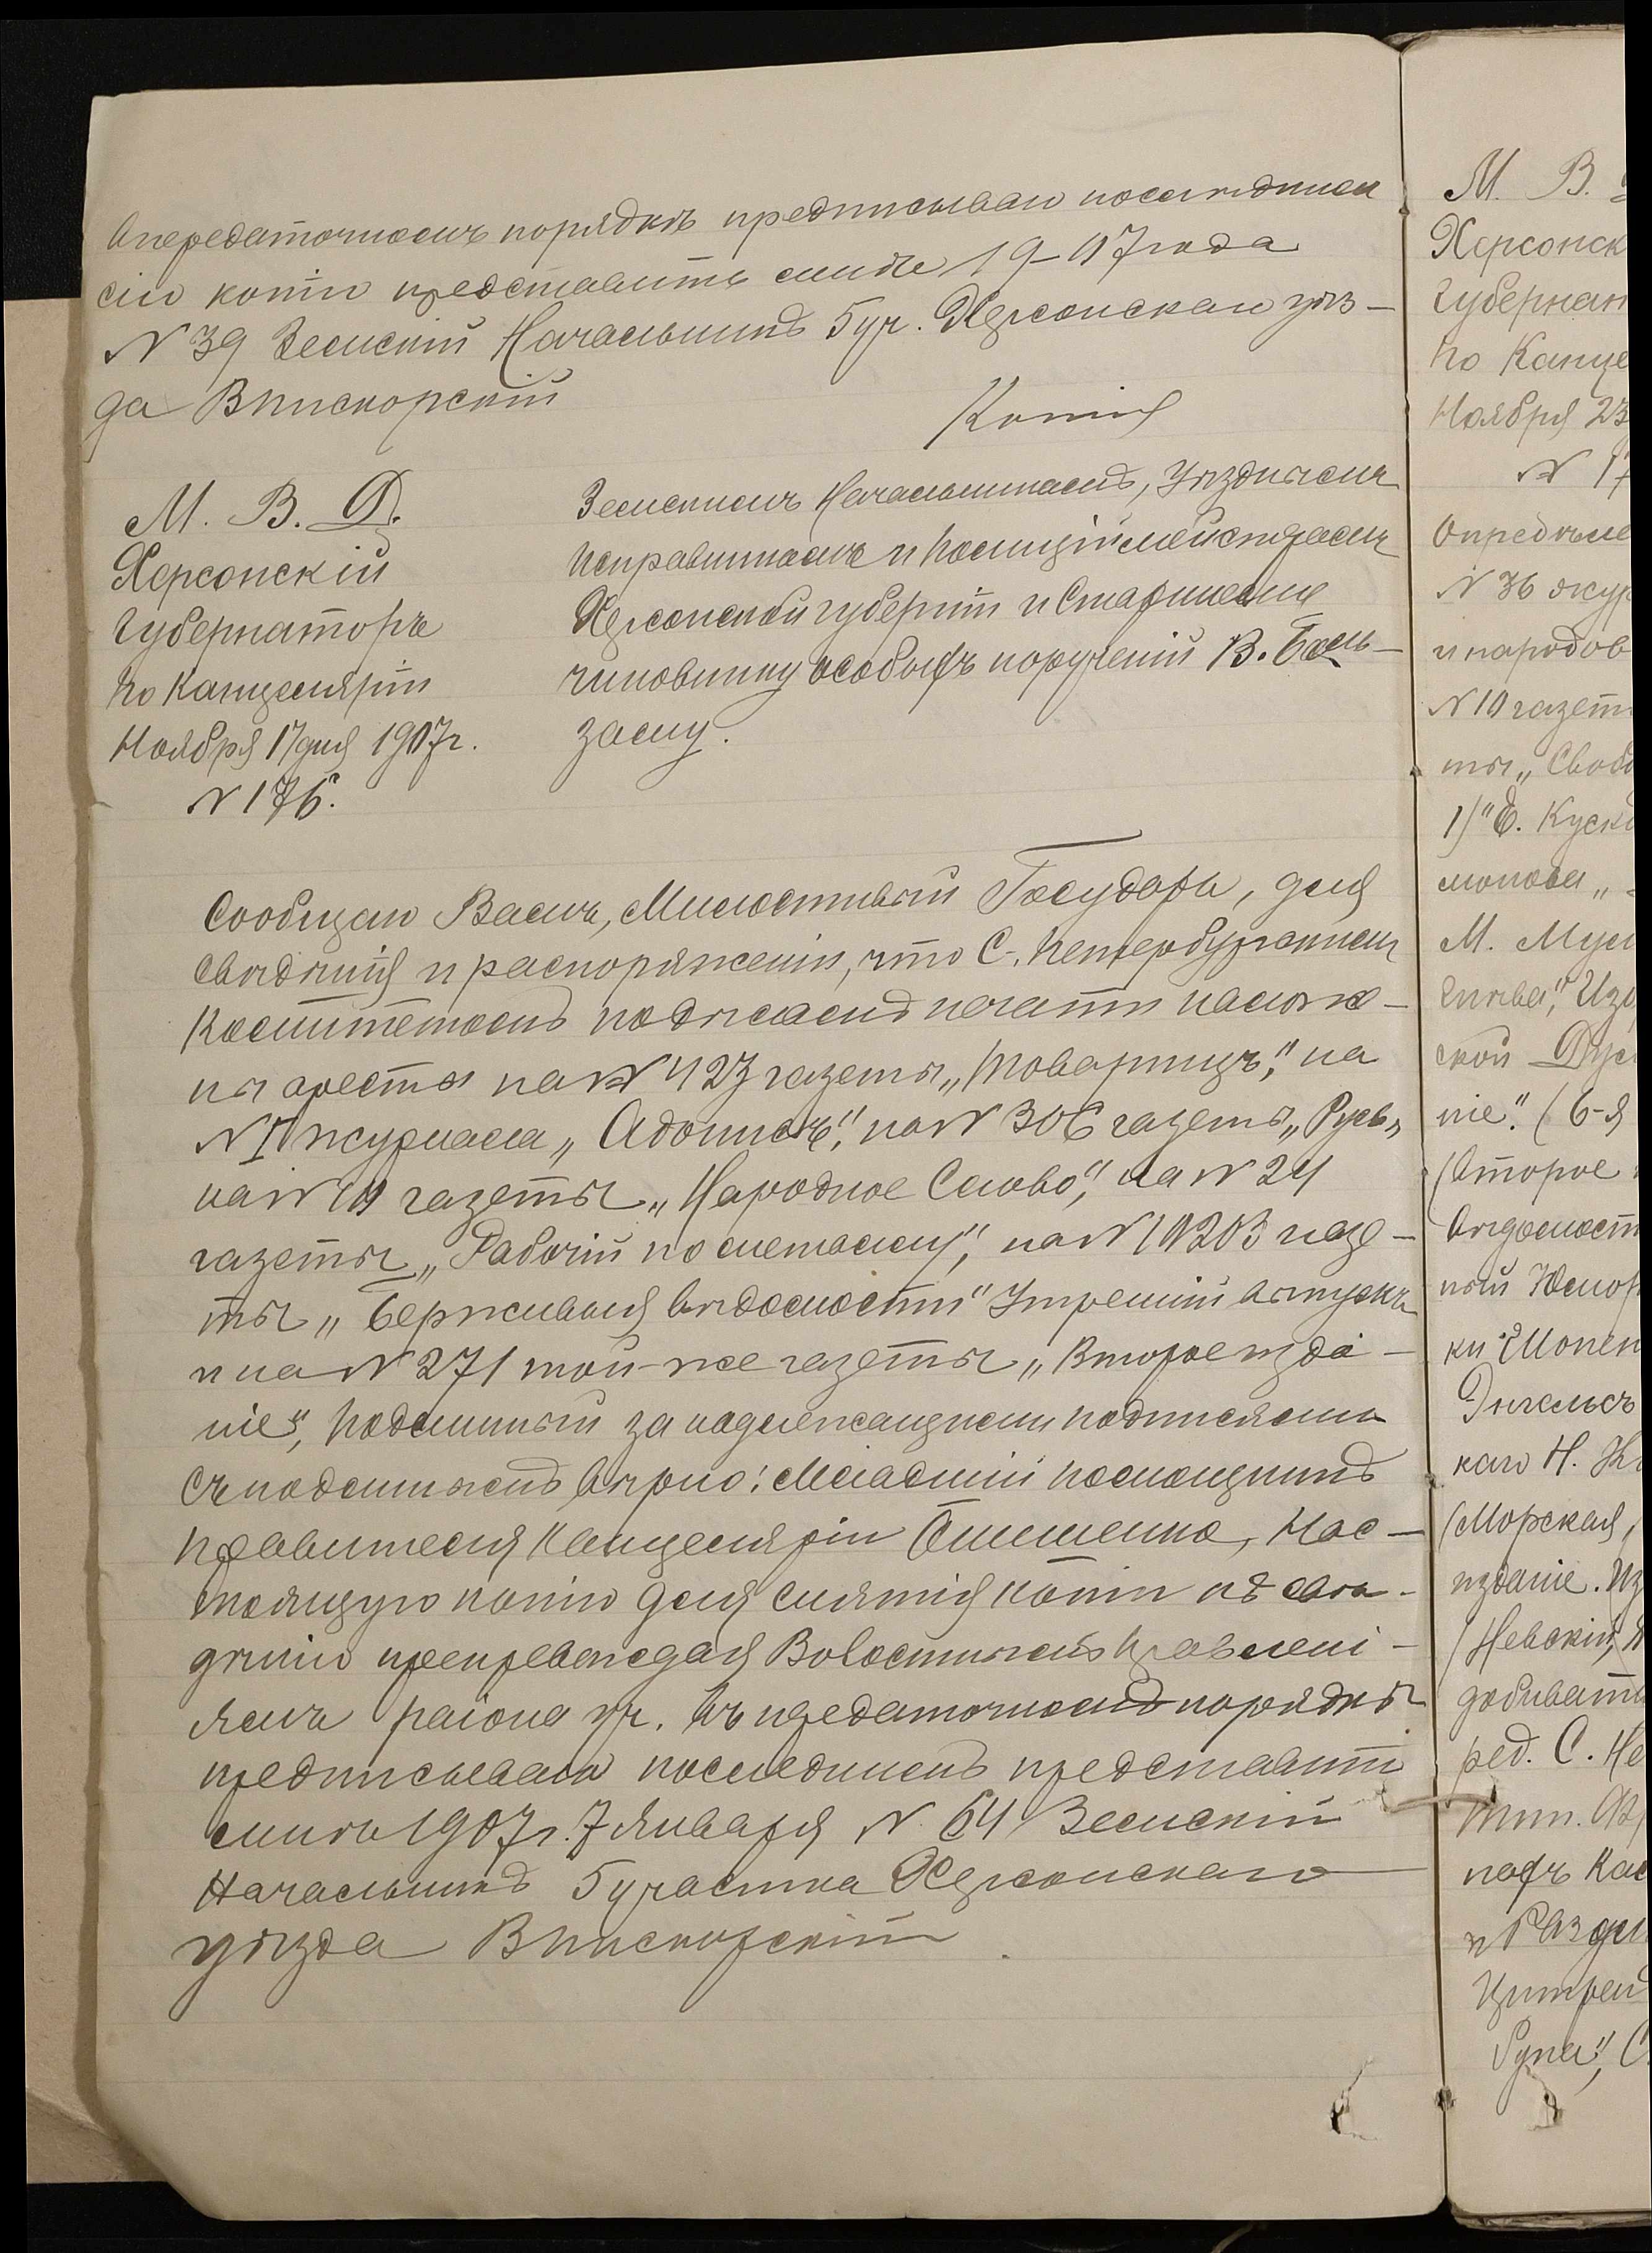 Впередаточномъ порядкѣ предписываю послѣднимъ
сію копію представить мнѣ 1907 года
N 39 Земскій Начальникъ 5 уч. Херсонскаго уѣз-
да Внискорскій
Копія
М. В. Д.
Херсонскій
Губернаторъ
По Канцеляріи
Ноября 17 дня 1907 г.
N 176.
Земскимъ Начальникамъ, Уѣзднымъ
Исправникамъ и Полиціймейстерамъ
Херсонской губерніи и Старшему
чиновнику особыхъ порученій В.
Сообщаю Вамъ, Милостивый Государь, для
свѣдѣнія и распоряженія, что С.-Петербургскимъ
Комитетомъ по дѣламъ печати наложе-
ны аресты на N 423 газеты „Товарищъ", на
N журнала „Адонисъ", на N 306 газеты „Русь"
на N 10 газеты „Народное Слово", на N 24
газеты „Рабочій по металлу", на N 10203 газе-
ты „Биржевыя Вѣдомости" Утренній выпускъ
и на N 271 той-же газеты „Второе изда-
ніе", Подлинный за надлежащими подписями
съ подлиннымъ вѣрно: Младшій помощникъ
Правителя Канцеляріи Нас-
тоящую копію для снятія копіи къ свѣ-
дѣнію препревождая Волостнымъ Правлені-
ямъ района уч. Въ передаточномъ порядкѣ
предписываю послѣднимъ представить
мнѣ 1907 г. 7 Января N 64 Земскій
Начальникъ 5 участка Херсонскаго
уѣзда Внискорскій
М. В.
Херсонск
Губернат
По Канце
Ноября 23
N 17
Опредѣле
N 36 жур
и народов
N 10 газет
ты „Свобо
1) "Е. Куско
М. Мус
ской Дум
ніе". (6-я
(Второе
Вѣдомост
ный Юмор
Энгельсъ
каго Н.
(Морская,
изданіе. Из
(Невскій,
ред. С. Не
Тип.
Руна", С